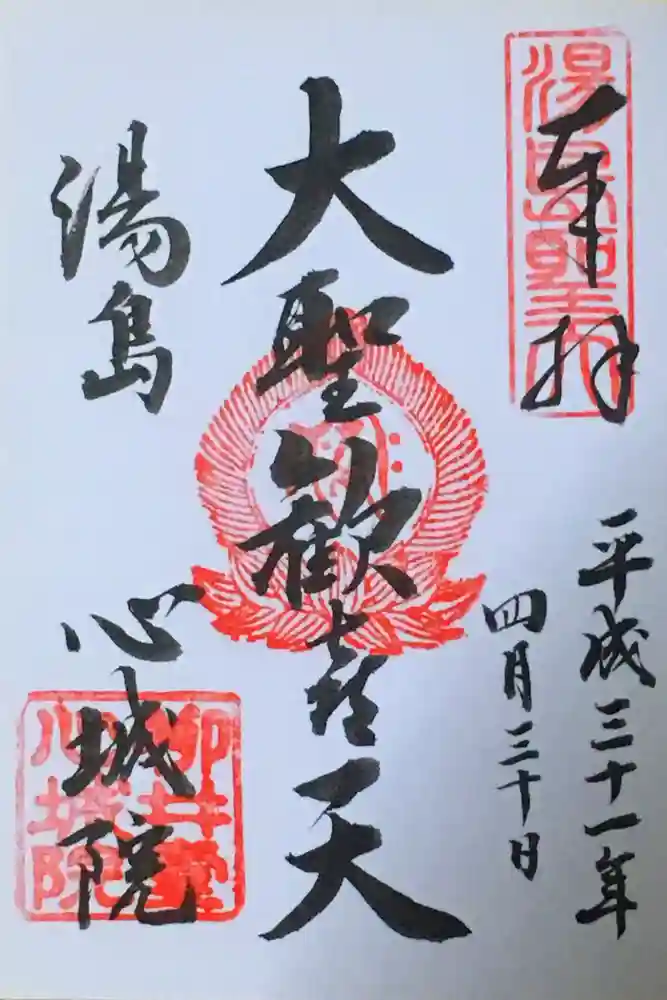 奉拝
湯島聖天
平成三十一年
四月三十日
大聖歓喜天
湯島
心城院
柳井堂
心城院